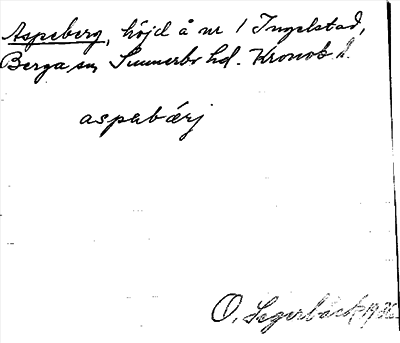 Aspeberg, höjd å nr 1 Ingelstad,
Berga sn, Sunnerbo hd. Kronob. l.
aspabärj
O. Segerbäck 19